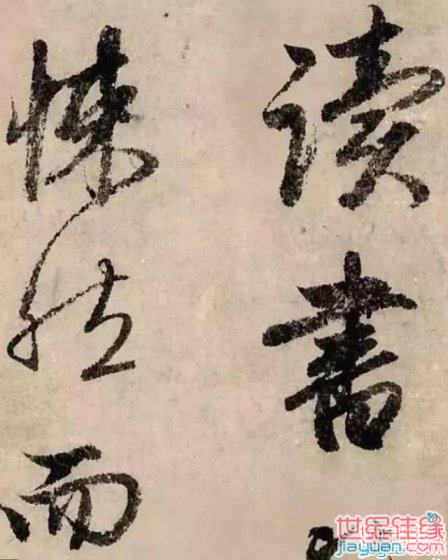 读书
悚然而
世纪佳缘
jiayuan.com